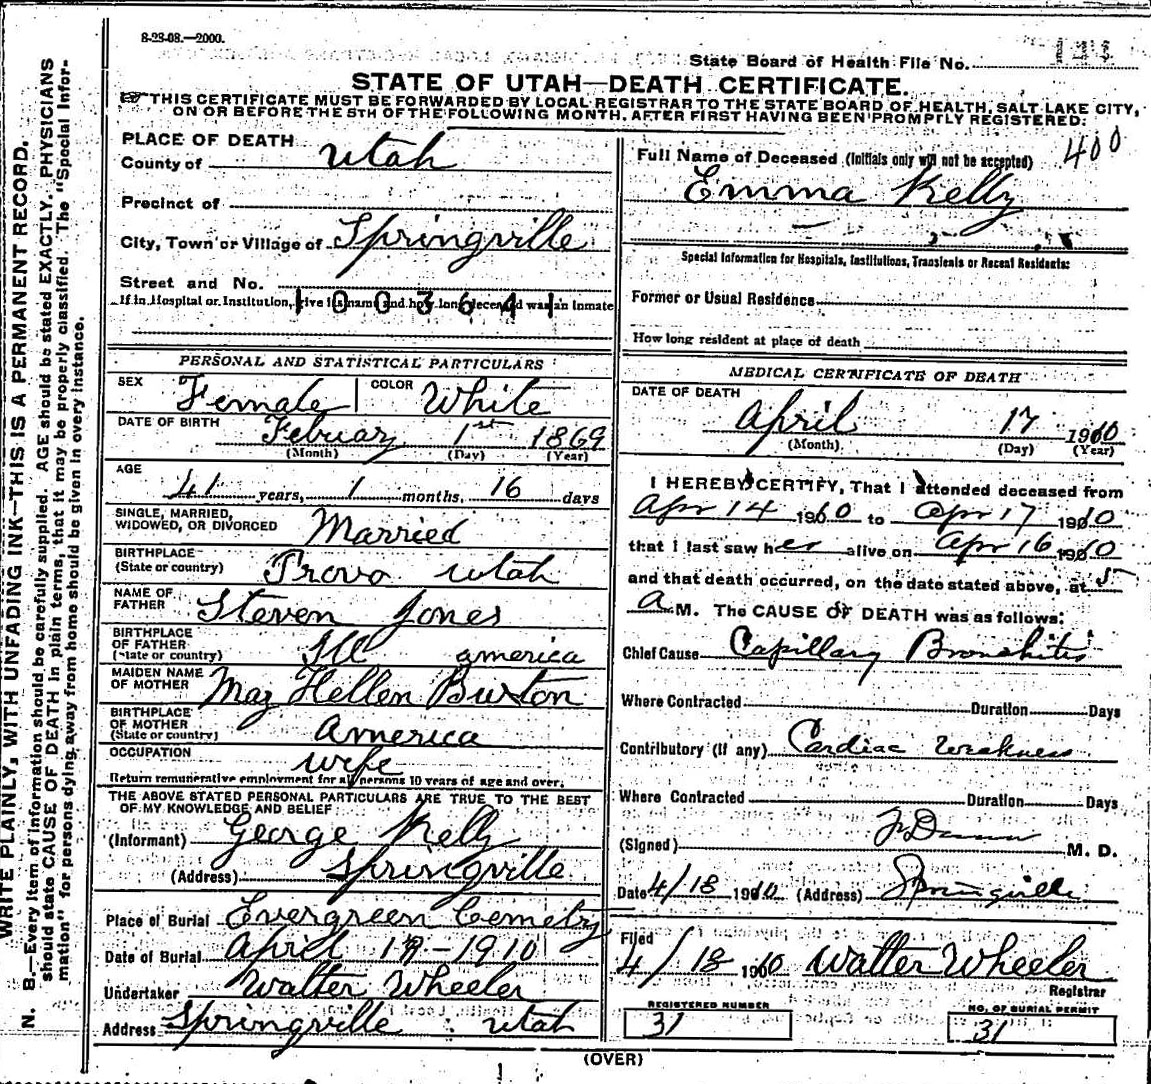 8-28-08.—2000.
State Board of Health File No.
STATE OF UTAH—DEATH CERTIFICATE.
THIS CERTIFICATE MUST BE FORWARDED BY LOCAL REGISTRAR TO THE STATE BOARD OF HEALTH, SALT LAKE CITY,
ON OR BEFORE THE 5TH OF THE FOLLOWING MONTH, AFTER FIRST HAVING BEEN PROMPTLY REGISTERED:
PLACE OF DEATH
County of Utah
Precinct of
City, Town or Village of Springville
Street and No.
If in Hospital or Institution, give its name and how long deceased was an inmate
1003641
PERSONAL AND STATISTICAL PARTICULARS
SEX Female COLOR White
DATE OF BIRTH Februay 1st 1869
(Month) (Day) (Year)
AGE
41 years, 1 months, 16 days
SINGLE, MARRIED,
WIDOWED, OR DIVORCED Married
BIRTHPLACE
(State or country) Provo Utah
NAME OF
FATHER Steven Jones
BIRTHPLACE
OF FATHER
(State or country) Ill america
MAIDEN NAME
OF MOTHER May Hellen Burton
BIRTHPLACE
OF MOTHER
(State or country) America
OCCUPATION wife
Return remunerative employment for all persons 10 years of age and over.
THE ABOVE STATED PERSONAL PARTICULARS ARE TRUE TO THE BEST
OF MY KNOWLEDGE AND BELIEF
(Informant) George Kelly
(Address) Springville
Place of Burial Evergreen Cemetry
Date of Burial April 19-1910
Undertaker Walter Wheeler
Address Springville Utah
400
Full Name of Deceased (Initials only will not be accepted)
Emma Kelly
Special Information for Hospitals, Institutions, Transients or Recent Residents:
Former or Usual Residence
How long resident at place of death
MEDICAL CERTIFICATE OF DEATH
DATE OF DEATH
April 17 1910
(Month) (Day) (Year)
I HEREBY CERTIFY, That I attended deceased from
Apr 14 1910 to Apr 17 1910
that I last saw her alive on Apr 16 1910
and that death occurred, on the date stated above, at 5
A M. The CAUSE OF DEATH was as follows:
Chief Cause Capillary Bronchitis
Where Contracted Duration Days
Contributory (if any) Cardiac Weakness
Where Contracted Duration Days
(Signed) M. D.
Date 4/18 1910 (Address) Springville
Filed
4/18 1910 Walter Wheeler
Registrar
REGISTERED NUMBER
31
NO. OF BURIAL PERMIT
31
(OVER)
WRITE PLAINLY, WITH UNFADING INK—THIS IS A PERMANENT RECORD.
N. B.—Every item of information should be carefully supplied. AGE should be stated EXACTLY. PHYSICIANS
should state CAUSE OF DEATH in plain terms, that it may be properly classified. The "Special Infor-
mation" for persons dying away from home should be given in every instance.